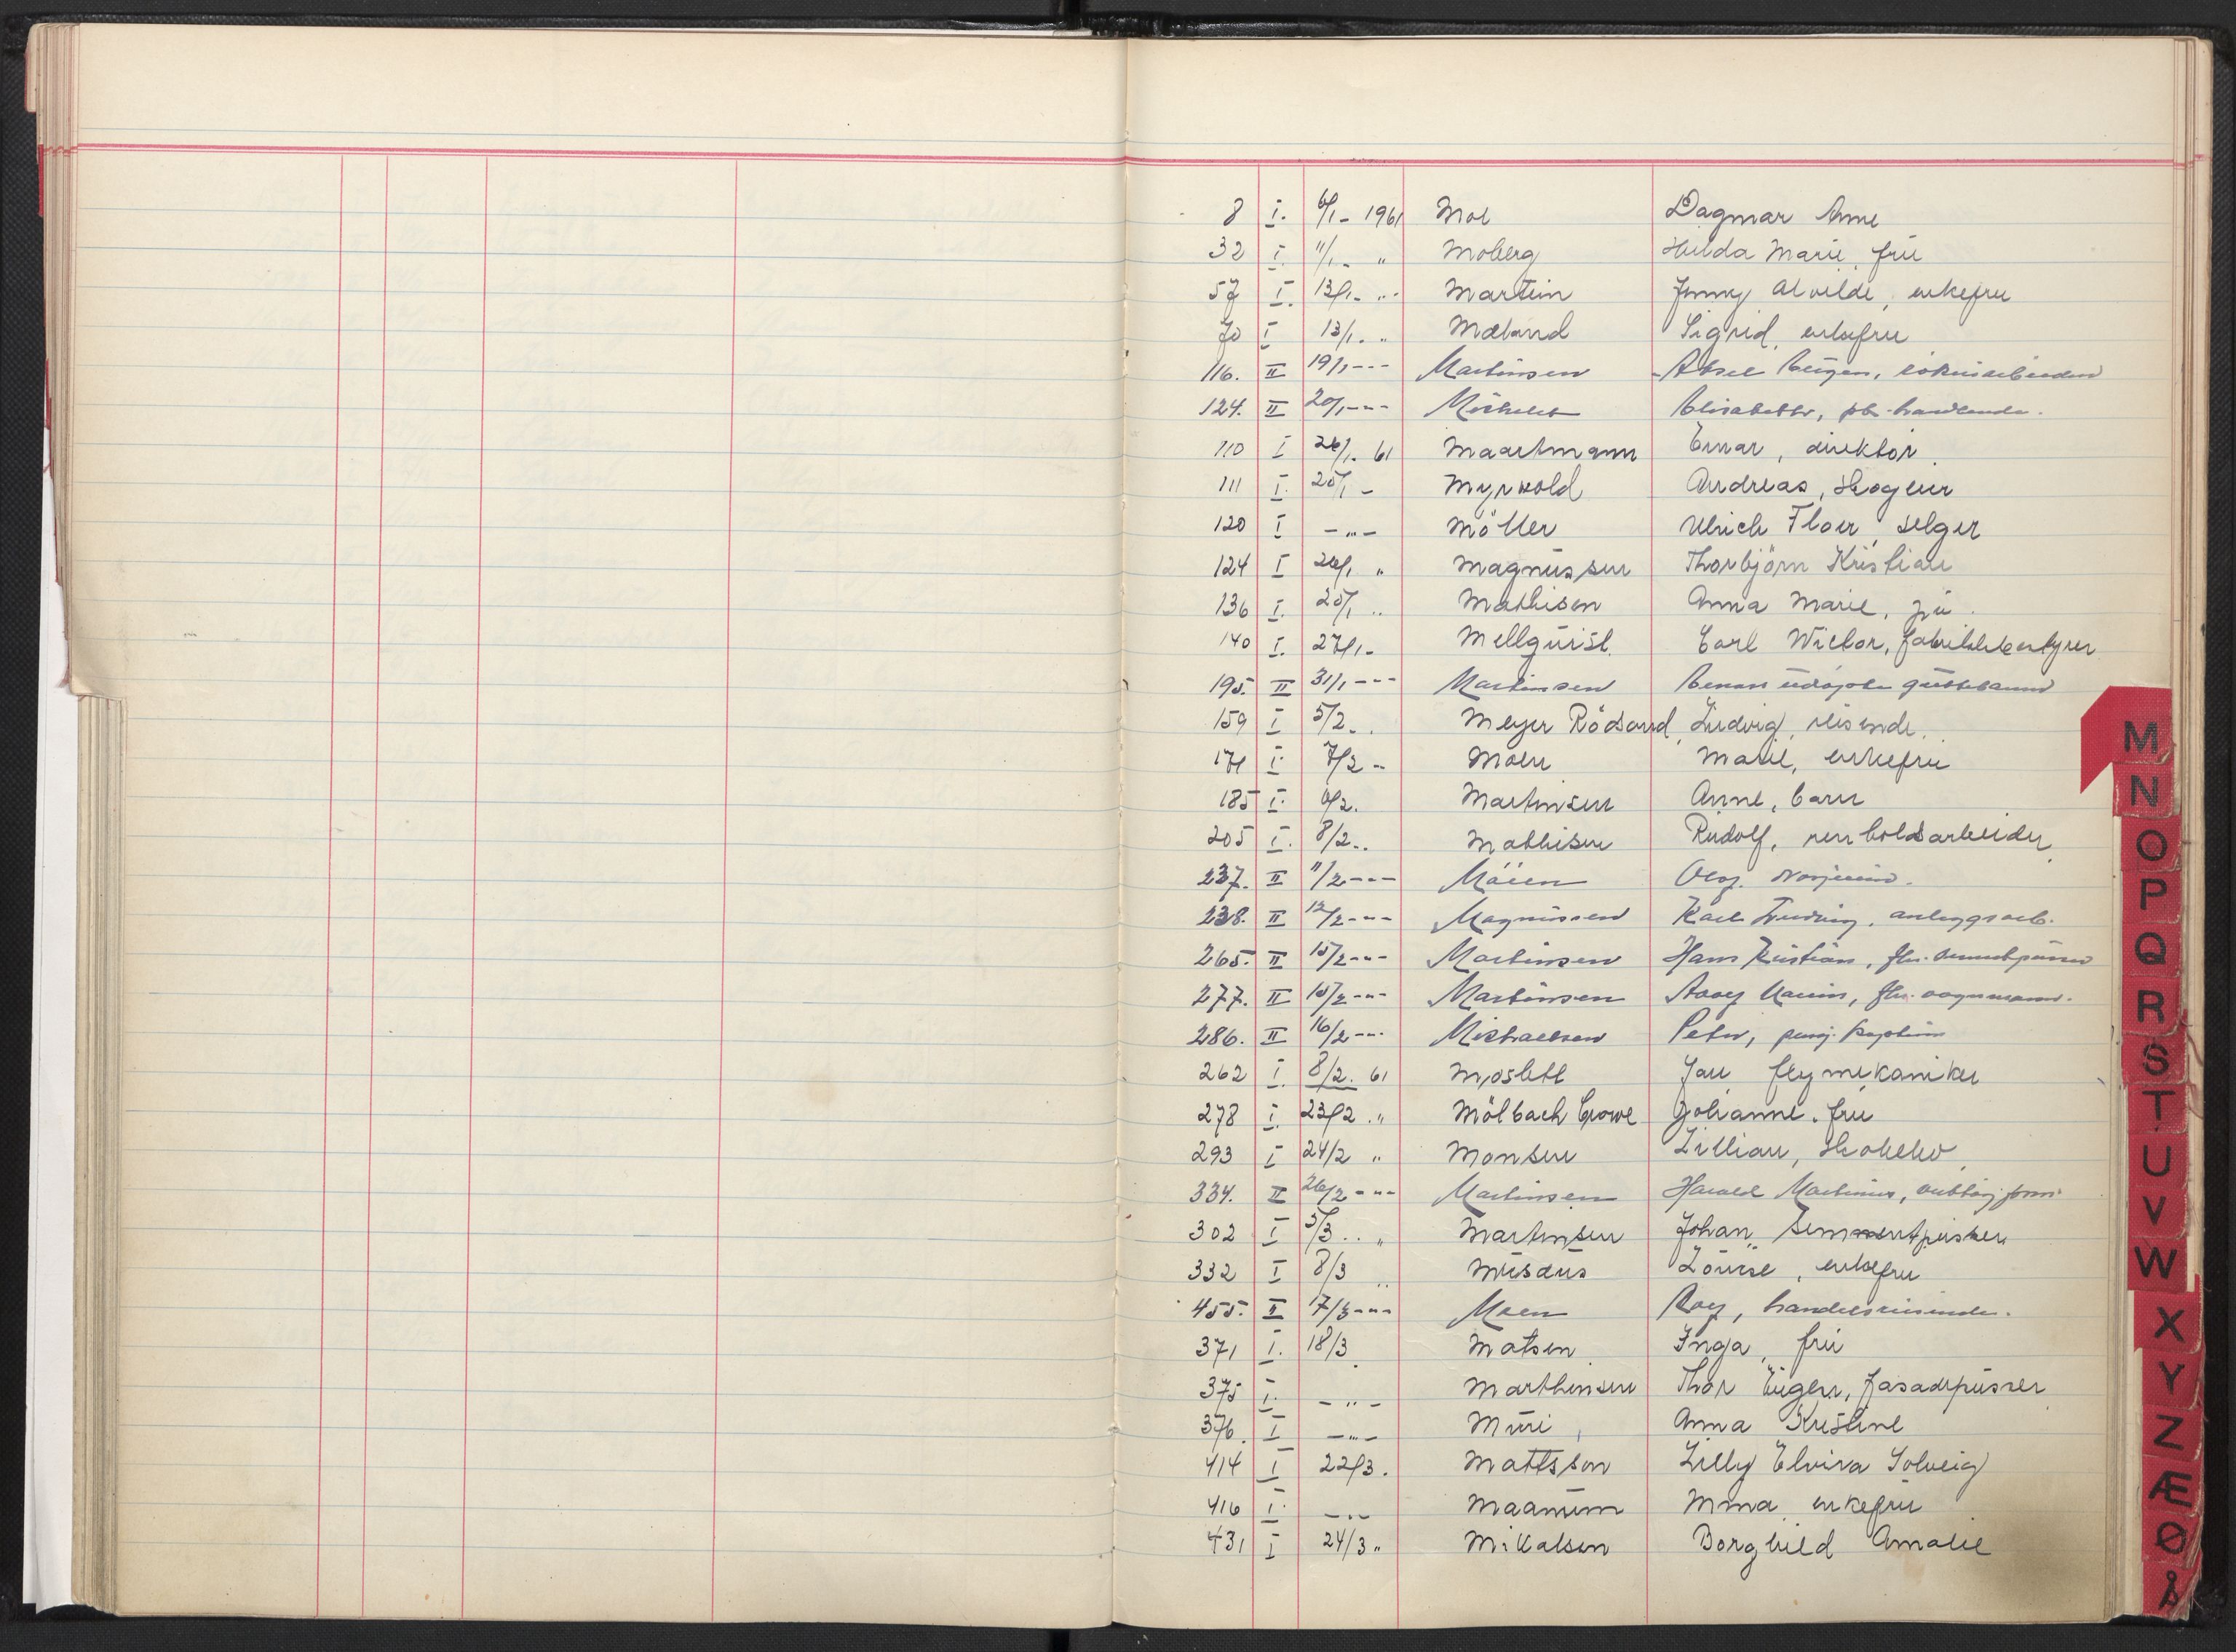 8 I. 6/1- 1961 Moe Dagmar Anne
32 I. 11/1- " Moberg Hulda Marie, fru
57 I. 13/1- " Martein Jenny Alvilde, enkefru
70 I 13/1. " Mæland Sigrid, enkefru
116. II 19/1-"- Martinsen Aksel Eugen,
124. II 20/1-"- Elisabeth,
110 I 26/1. 61 Maartmann Einar, direktør.
111 I. 25/1 - Myrvold Andreas, skogeier
120 I -"- Möller Ulrich Floer, selger
124 I 26/1 " Magnussen Thorbjörn Kristian
136 I. 25/1 " Mathisen Anna Marie, fru.
140 I. 27/1- Mellquist. Carl Wictor, fabrikkbestyrer
195. II 31/1-"- Martinsen
159 I 5/2. . Meyer Rödsand, Ludvig, reisende.
171 I 7/2 - Moen Marie, enkefru
185 I. 6/2. Martinsen Anne, barn
205 I. 8/2.. Mathisen Rudolf, renholdsarbeider
237. II 11/2-"- Möien
238. II 12/2-"- Magnussen Karl Ludvig, anleggsarb.
265. II 15/2-"- Martinsen Hans Kristian,
277. II 15/2-"- Martinsen
286. II 16/2-"- Michaelsen Peter,
262 I. 8/2. 61 Mjøslett Jan flymekaniker
278 I. 23/2 ." Mölbach Crowe Johanne. fru
293 I 24/2 " Monsen Lillian,
334. II 26/2-"- Martinsen Harald Martinus,
302 I 5/3 .. " Martinsen Johan, sementpusser
332 I 8/3 " Musæus Louise, enkefru
455. II 17/3-"- Moen Roy, handelsreisende.
371 I. 18/3 Matsen Inga, fru
375 I. -"- Marthinsen Thor Eugen, fasadepusser
376. I -"- Muri, Anna Kristine
414 I 22/3. Mattsson Lilly Elvira Solveig
416 I. -"- Maanum Mina enkefru
431 I 24/3 " Mikalsen Borghild Amalie
M
N
O
P
Q
R
S
T
U
V
W
X
Y
Z
Æ
Ø
Å